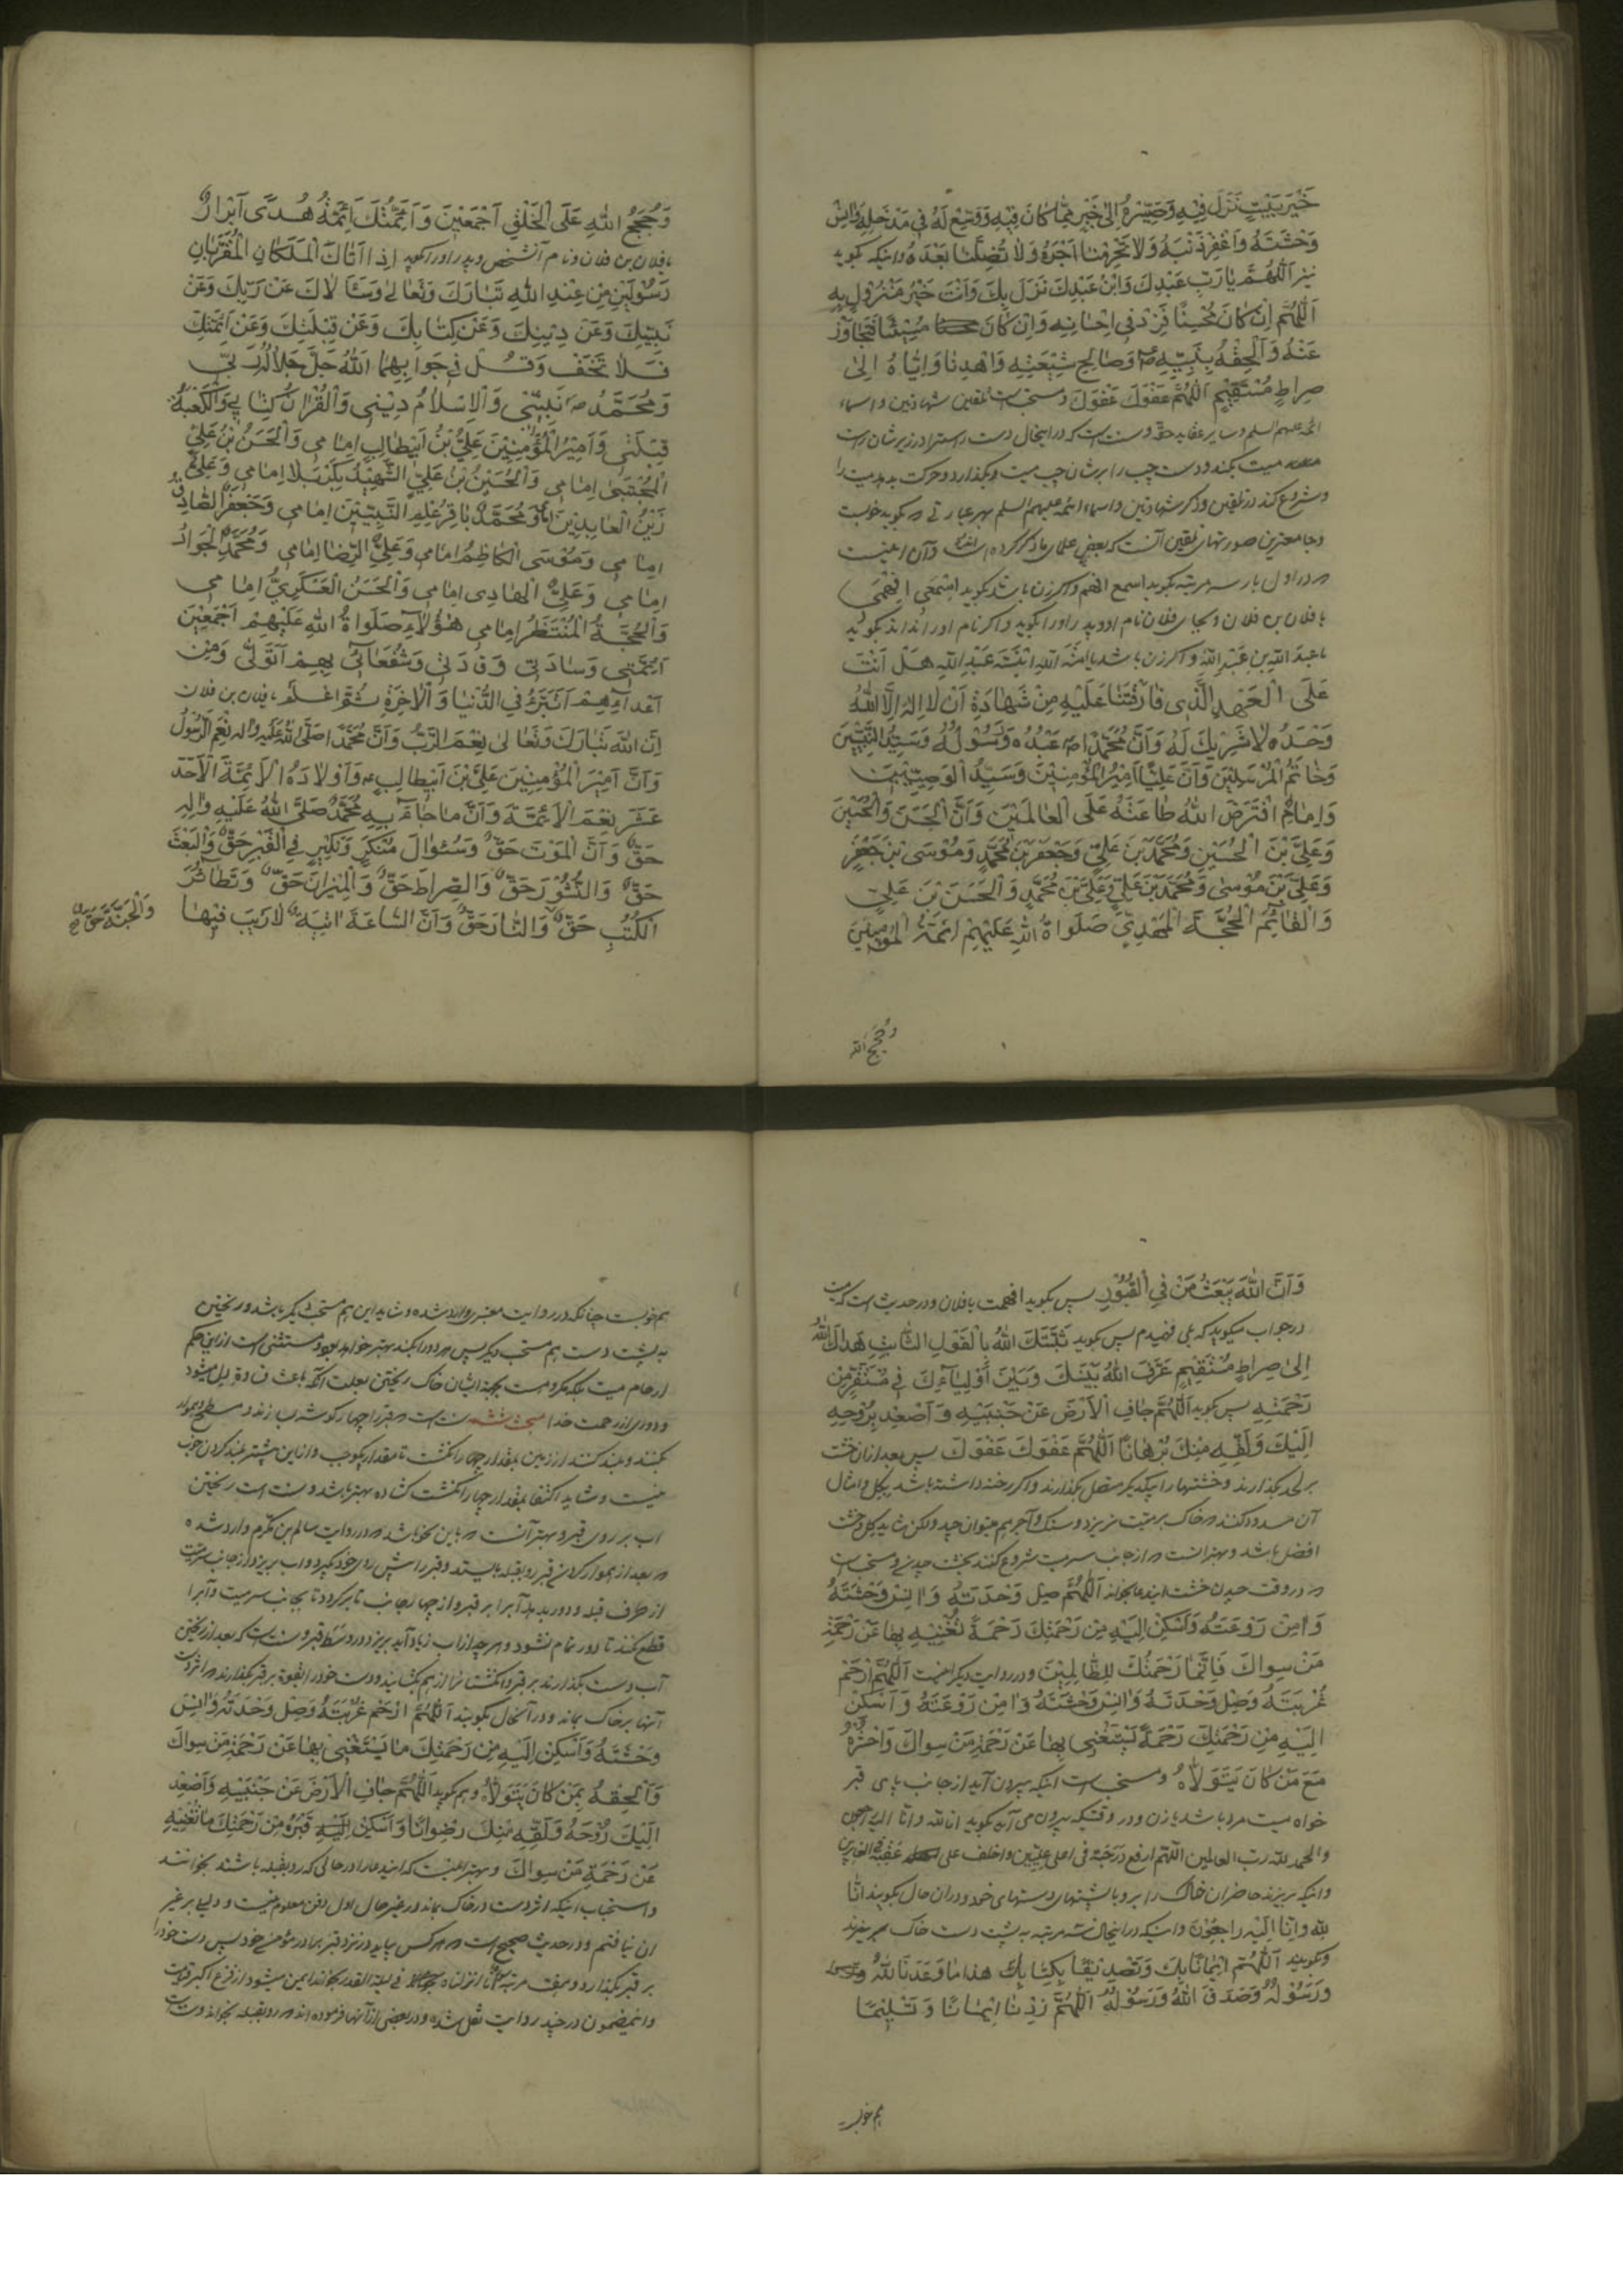 خَيْرَ بَيْتٍ نَزَلَ فِيهِ وَصَيِّرْهُ اِلىٰ خَيْرٍ مِمّا كانَ فِيْهِ وَوَسِّعْ لَهُ فِي مَدْخَلِهِ وَانِسْ
وَحْشَتَهُ وَاغْفِرْ ذَنْبَهُ وَلا تَحْرِمْنا اَجْرَهُ وَلا تُضِلَّنا بَعْدَهُ وانیکه بکوید
نیز اَللّهُمَّ يا رَبِّ عَبْدِكَ وَابْنُ عَبْدِكَ نَزَلَ بِكَ وَاَنْتَ خَيْرُ مَنْزُولٍ بِهِ
اَللّهُمَّ اِنْ كانَ مُحْسِنًا فَزِدْ فِي اِحْسانِهِ وَاِنْ كانَ مُسِيْئًا فَتَجاوَزْ
عَنْهُ وَاَلْحِقْهُ بِنَبِيِّهِ ص وَصالِحِ شِيْعَتِهِ وَاهْدِنا وَاِيّاهُ اِلىٰ
صِراطٍ مُسْتَقِيْمٍ اَللّهُمَّ عَفْوَكَ عَفْوَكَ و مستحب است تلقین شهادتین و اسماء
ائمه علیهم السلم و سایر عقاید حقه و سنت است که در اینحال دست راسترا در زیر شان راست
میت بکند و دست چپ را بر شان چپ میت بکذارد و حرکت بدهد میت را
و شروع کند در تلقین و ذکر شهادتین و اسماء ائمه علیهم السلم بهر عبارتی که بکوید خوبست
و جامعترین صورتهای تلقین آنست که بعضی علما یاد کرده اند و آن اینست
که در اول بار سه مرتبه بکوید اسمع افهم و اکر زن باشد بکوید اِسْمَعِي اِفْهَمِي
یا فلان بن فلان و بجای فلان نام او و پدر او را بکوید و اکر نام او را نداند بکوید
یا عبدَ اللّهِ بن عَبْدِ اللّهِ و اکر زن باشد یا اَمَةَ اللّهِ ابْنَةَ عَبْدِ اللّهِ هَلْ اَنْتَ
عَلَى الْعَهْدِ الَّذِي فارَقْتَنا عَلَيْهِ مِنْ شَهادَةِ اَنْ لا اِلهَ اِلَّا اللّهُ
وَحْدَهُ لا شَرِيْكَ لَهُ وَاَنَّ مُحَمَّدًا ص عَبْدُهُ وَرَسُوْلُهُ وَسَيِّدُ النَّبِيّيْنَ
وَخاتَمُ الْمُرْسَلِيْنَ وَاَنَّ عَلِيًّا اَمِيْرُ الْمُؤْمِنِيْنَ وَسَيِّدُ الْوَصِيّيْنَ
وَاِمامٌ افْتَرَضَ اللّهُ طاعَتَهُ عَلَى الْعالَمِيْنَ وَاَنَّ الْحَسَنَ وَالْحُسَيْنَ
وَعَلِيَّ بْنَ الْحُسَيْنِ وَمُحَمَّدَ بْنَ عَلِيٍّ وَجَعْفَرَ بْنَ مُحَمَّدٍ وَمُوْسَى بْنَ جَعْفَرٍ
وَعَلِيَّ بْنَ مُوْسىٰ وَمُحَمَّدَ بْنَ عَلِيٍّ وَعَلِيَّ بْنَ مُحَمَّدٍ وَالْحَسَنَ بْنَ عَلِيٍّ
وَالْقائِمَ الْحُجَّةَ الْمَهْدِيَّ صَلَواةُ اللّهِ عَلَيْهِمْ اَئِمَّةُ الْمُؤْمِنِيْنَ
وَحُجَجُ اللّه
وَحُجَجُ اللّهِ عَلَى الْخَلْقِ اَجْمَعِيْنَ وَاَئِمَّتُكَ اَئِمَّةُ هُدًى اَبْرارٌ
یا فلان بن فلان و نام آنشخص و پدر او را بکوید اِذا اَتاكَ الْمَلَكانِ الْمُقَرَّبانِ
رَسُوْلَيْنِ مِنْ عِنْدِ اللّهِ تَبارَكَ وَتَعالى وَسَئَلاكَ عَنْ رَبِّكَ وَعَنْ
نَبِيِّكَ وَعَنْ دِيْنِكَ وَعَنْ كِتابِكَ وَعَنْ قِبْلَتِكَ وَعَنْ اَئِمَّتِكَ
فَلا تَخَفْ وَقُلْ فِي جَوابِهِما اَللّهُ جَلَّ جَلالُهُ رَبِّي
وَمُحَمَّدٌ ص نَبِيِّي وَالْاِسْلامُ دِيْنِي وَالْقُرْانُ كِتابِي وَالْكَعْبَةُ
قِبْلَتِي وَاَمِيْرُ الْمُؤْمِنِيْنَ عَلِيُّ بْنُ اَبِيْطالِبٍ اِمامِي وَالْحَسَنُ بْنُ عَلِيٍّ
الْمُجْتَبىٰ اِمامِي وَالْحُسَيْنُ بْنُ عَلِيٍّ الشَّهِيْدُ بِكَرْبَلا اِمامِي وَعَلِيٌّ
زَيْنُ الْعابِدِيْنَ اِمامِي وَمُحَمَّدٌ باقِرُ عِلْمِ النَّبِيّيْنَ اِمامِي وَجَعْفَرٌ الصّادِقُ
اِمامِي وَمُوْسَى الْكاظِمُ اِمامِي وَعَلِيٌّ الرِّضا اِمامِي وَمُحَمَّدٌ الْجَوادُ
اِمامِي وَعَلِيٌّ الْهادِي اِمامِي وَالْحَسَنُ الْعَسْكَرِيُّ اِمامِي
وَالْحُجَّةُ الْمُنْتَظَرُ اِمامِي هٰؤُلآءِ صَلَواةُ اللّهِ عَلَيْهِمْ اَجْمَعِيْنَ
اَئِمَّتِي وَسادَتِي وَقادَتِي وَشُفَعائِي بِهِمْ اَتَوَلّىٰ وَمِنْ
اَعْدائِهِمْ اَتَبَرَّءُ فِي الدُّنْيا وَالْاخِرَةِ ثُمَّ اعْلَمْ یا فلان بن فلان
اِنَّ اللّهَ تَبارَكَ وَتَعالىٰ نِعْمَ الرَّبُّ وَاَنَّ مُحَمَّدًا صَلَّى اللّهُ عَلَيْهِ وَالِهِ نِعْمَ الرَّسُوْلُ
وَاَنَّ اَمِيْرَ الْمُؤْمِنِيْنَ عَلِيَّ بْنَ اَبِيْطالِبٍ ع وَاَوْلادَهُ الْاَئِمَّةَ الْاَحَدَ
عَشَرَ نِعْمَ الْاَئِمَّةُ وَاَنَّ ما جاءَ بِهِ مُحَمَّدٌ صَلَّى اللّهُ عَلَيْهِ وَالِهِ
حَقٌّ وَاَنَّ الْمَوْتَ حَقٌّ وَسُئوالَ مُنْكَرٍ وَنَكِيْرٍ فِي الْقَبْرِ حَقٌّ وَالْبَعْثَ
حَقٌّ وَالنُّشُوْرَ حَقٌّ وَالصِّراطَ حَقٌّ وَالْمِيْزانَ حَقٌّ وَتَطائُرَ
الْكُتُبِ حَقٌّ وَالنّارَ حَقٌّ وَاَنَّ السّاعَةَ اتِيَةٌ لا رَيْبَ فِيْها
وَالْجَنَّةَ حَقٌّ
وَاَنَّ اللّهَ يَبْعَثُ مَنْ فِي الْقُبُوْرِ پس بکوید افهمت یا فلان و در حدیث است که میت
در جواب میکوید که بلی فهمیدم پس بکوید ثَبَّتَكَ اللّهُ بِالْقَوْلِ الثّابِتِ هَداكَ اللّهُ
اِلىٰ صِراطٍ مُسْتَقِيْمٍ عَرَّفَ اللّهُ بَيْنَكَ وَبَيْنَ اَوْلِيائِكَ فِي مُسْتَقَرٍّ مِنْ
رَحْمَتِهِ پس بکوید اَللّهُمَّ جافِ الْاَرْضَ عَنْ جَنْبَيْهِ وَاَصْعِدْ بِرُوْحِهِ
اِلَيْكَ وَلَقِّهِ مِنْكَ بُرْهانًا اَللّهُمَّ عَفْوَكَ عَفْوَكَ پس بعد از ان خشت
بر لحد بکذارند و خشتها را بیکدیکر متصل بکذارند و اکر رخنه داشته باشد بکل و امثال
آن مسدود کنند که خاک بر میت نریزد و سنک و آجر هم میتوان چید ولکن شاید کل و خشت
افضل باشد و بهتر انست که از جانب سر میت شروع کنند بخشت چیدن و مستحب است
که در وقت چیدن خشت ایندعا بخواند اَللّهُمَّ صِلْ وَحْدَتَهُ وَانِسْ وَحْشَتَهُ
وَامِنْ رَوْعَتَهُ وَاَسْكِنْ اِلَيْهِ مِنْ رَحْمَتِكَ رَحْمَةً تُغْنِيْهِ بِها عَنْ رَحْمَةِ
مَنْ سِواكَ فَاِنَّما رَحْمَتُكَ لِلظّالِمِيْنَ و در روایت دیکر اینست اَللّهُمَّ ارْحَمْ
غُرْبَتَهُ وَصِلْ وَحْدَتَهُ وَانِسْ وَحْشَتَهُ وَامِنْ رَوْعَتَهُ وَاَسْكِنْ
اِلَيْهِ مِنْ رَحْمَتِكَ رَحْمَةً يَسْتَغْنِي بِها عَنْ رَحْمَةِ مَنْ سِواكَ وَاحْشُرْهُ
مَعَ مَنْ كانَ يَتَوَلّاهُ و مستحب است اینکه بیرون آید از جانب پای قبر
خواه میت مرد باشد یا زن و در وقتیکه بیرون می آید بکوید انا لله و انا الیه راجعون
والحمد لله رب العالمین اللهم ارفع درجته فی اعلی علیین واخلف علی عقبه فی الغابرین
و انیکه بریزند حاضران خاک را برو با پشتهای دستهای خود و در ان حال بکویند اِنّا
لِلّهِ وَاِنّا اِلَيْهِ راجِعُوْنَ و اینکه در اینحال سه مرتبه به پشت دست خاک بریزند
و بکویند اَللّهُمَّ اِيْمانًا بِكَ وَتَصْدِيْقًا بِكِتابِكَ هذا ما وَعَدَنا اللّهُ
وَرَسُوْلُهُ وَصَدَقَ اللّهُ وَرَسُوْلُهُ اَللّهُمَّ زِدْنا اِيْمانًا وَتَسْلِيْمًا
هم خوبست
هم خوبست چنانکه در روایت معتبر وارد شده و شاید این هم مستحب دیکر باشد و ریختن
به پشت دست هم مستحب دیکر پس هر دو را بکنند بهتر خواهد بود و مستثنی است از این حکم
ارحام میت بلکه مکروهست بجهة ایشان خاک ریختن بعلت آنکه باعث قساوة دل میشود
و دوری از رحمت خدا مبحث ششم سنت است که قبر را چهار کوشه بسازند و مسطح و هموار
بکنند و بلند کنند از زمین بمقدار چهار انکشت تا مقدار یکوجب و از این بیشتر بلند کردن خوب
نیست و شاید اکتفا بمقدار چهار انکشت کشاده بهتر باشد و سنت است ریختن
اب بر روی قبر و بهتر آنست که باین نحو باشد که در روایت سالم بن مکرم وارد شده
که بعد از هموار کردن قبر رو بقبله بایستد و قبر را پیش روی خود بکیرد و اب بریزد از جانب سر میت
از طرف قبله و دور بدهد آبرا بر قبر و از چهار جانب تا برکردد تا بجانب سر میت و آبرا
قطع نکند تا دور تمام نشود و هر چه از اب زیاد آید بریزد در وسط قبر و سنت است که بعد از ریختن
آب دست بکذارند بر قبر و انکشتانرا از هم بکشایند و دست خود را بقوة بر قبر بکذارند که اثر دست
آنها بر خاک بماند و در آنحال بکویند اَللّهُمَّ ارْحَمْ غُرْبَتَهُ وَصِلْ وَحْدَتَهُ وَانِسْ
وَحْشَتَهُ وَاَسْكِنْ اِلَيْهِ مِنْ رَحْمَتِكَ ما يَسْتَغْنِي بِها عَنْ رَحْمَةِ مَنْ سِواكَ
وَاَلْحِقْهُ بِمَنْ كانَ يَتَوَلّاهُ و هم بکوید اَللّهُمَّ جافِ الْاَرْضَ عَنْ جَنْبَيْهِ وَاَصْعِدْ
اِلَيْكَ رُوْحَهُ وَلَقِّهِ مِنْكَ رِضْوانًا وَاَسْكِنْ قَبْرَهُ مِنْ رَحْمَتِكَ ما تُغْنِيْهِ
عَنْ رَحْمَةِ مَنْ سِواكَ و بهتر اینست که ایندعا را در حالی که رو بقبله باشند بخوانند
و استحباب اینکه اثر دست در خاک بماند در غیر حال اول دفن معلوم نیست و دلیلی بر غیر
ان نیافتم و در حدیث صحیح است که هر کس بیاید در نزد قبر برادر مؤمن خود پس دست خود را
بر قبر بکذارد و هفت مرتبه انا انزلناه فی لیلة القدر بخواند ایمن میشود از فزع اکبر
و اینمضمون در چند روایت نقل شده و در بعضی از آنها فرموده اند که رو بقبله بخواند و سنت است